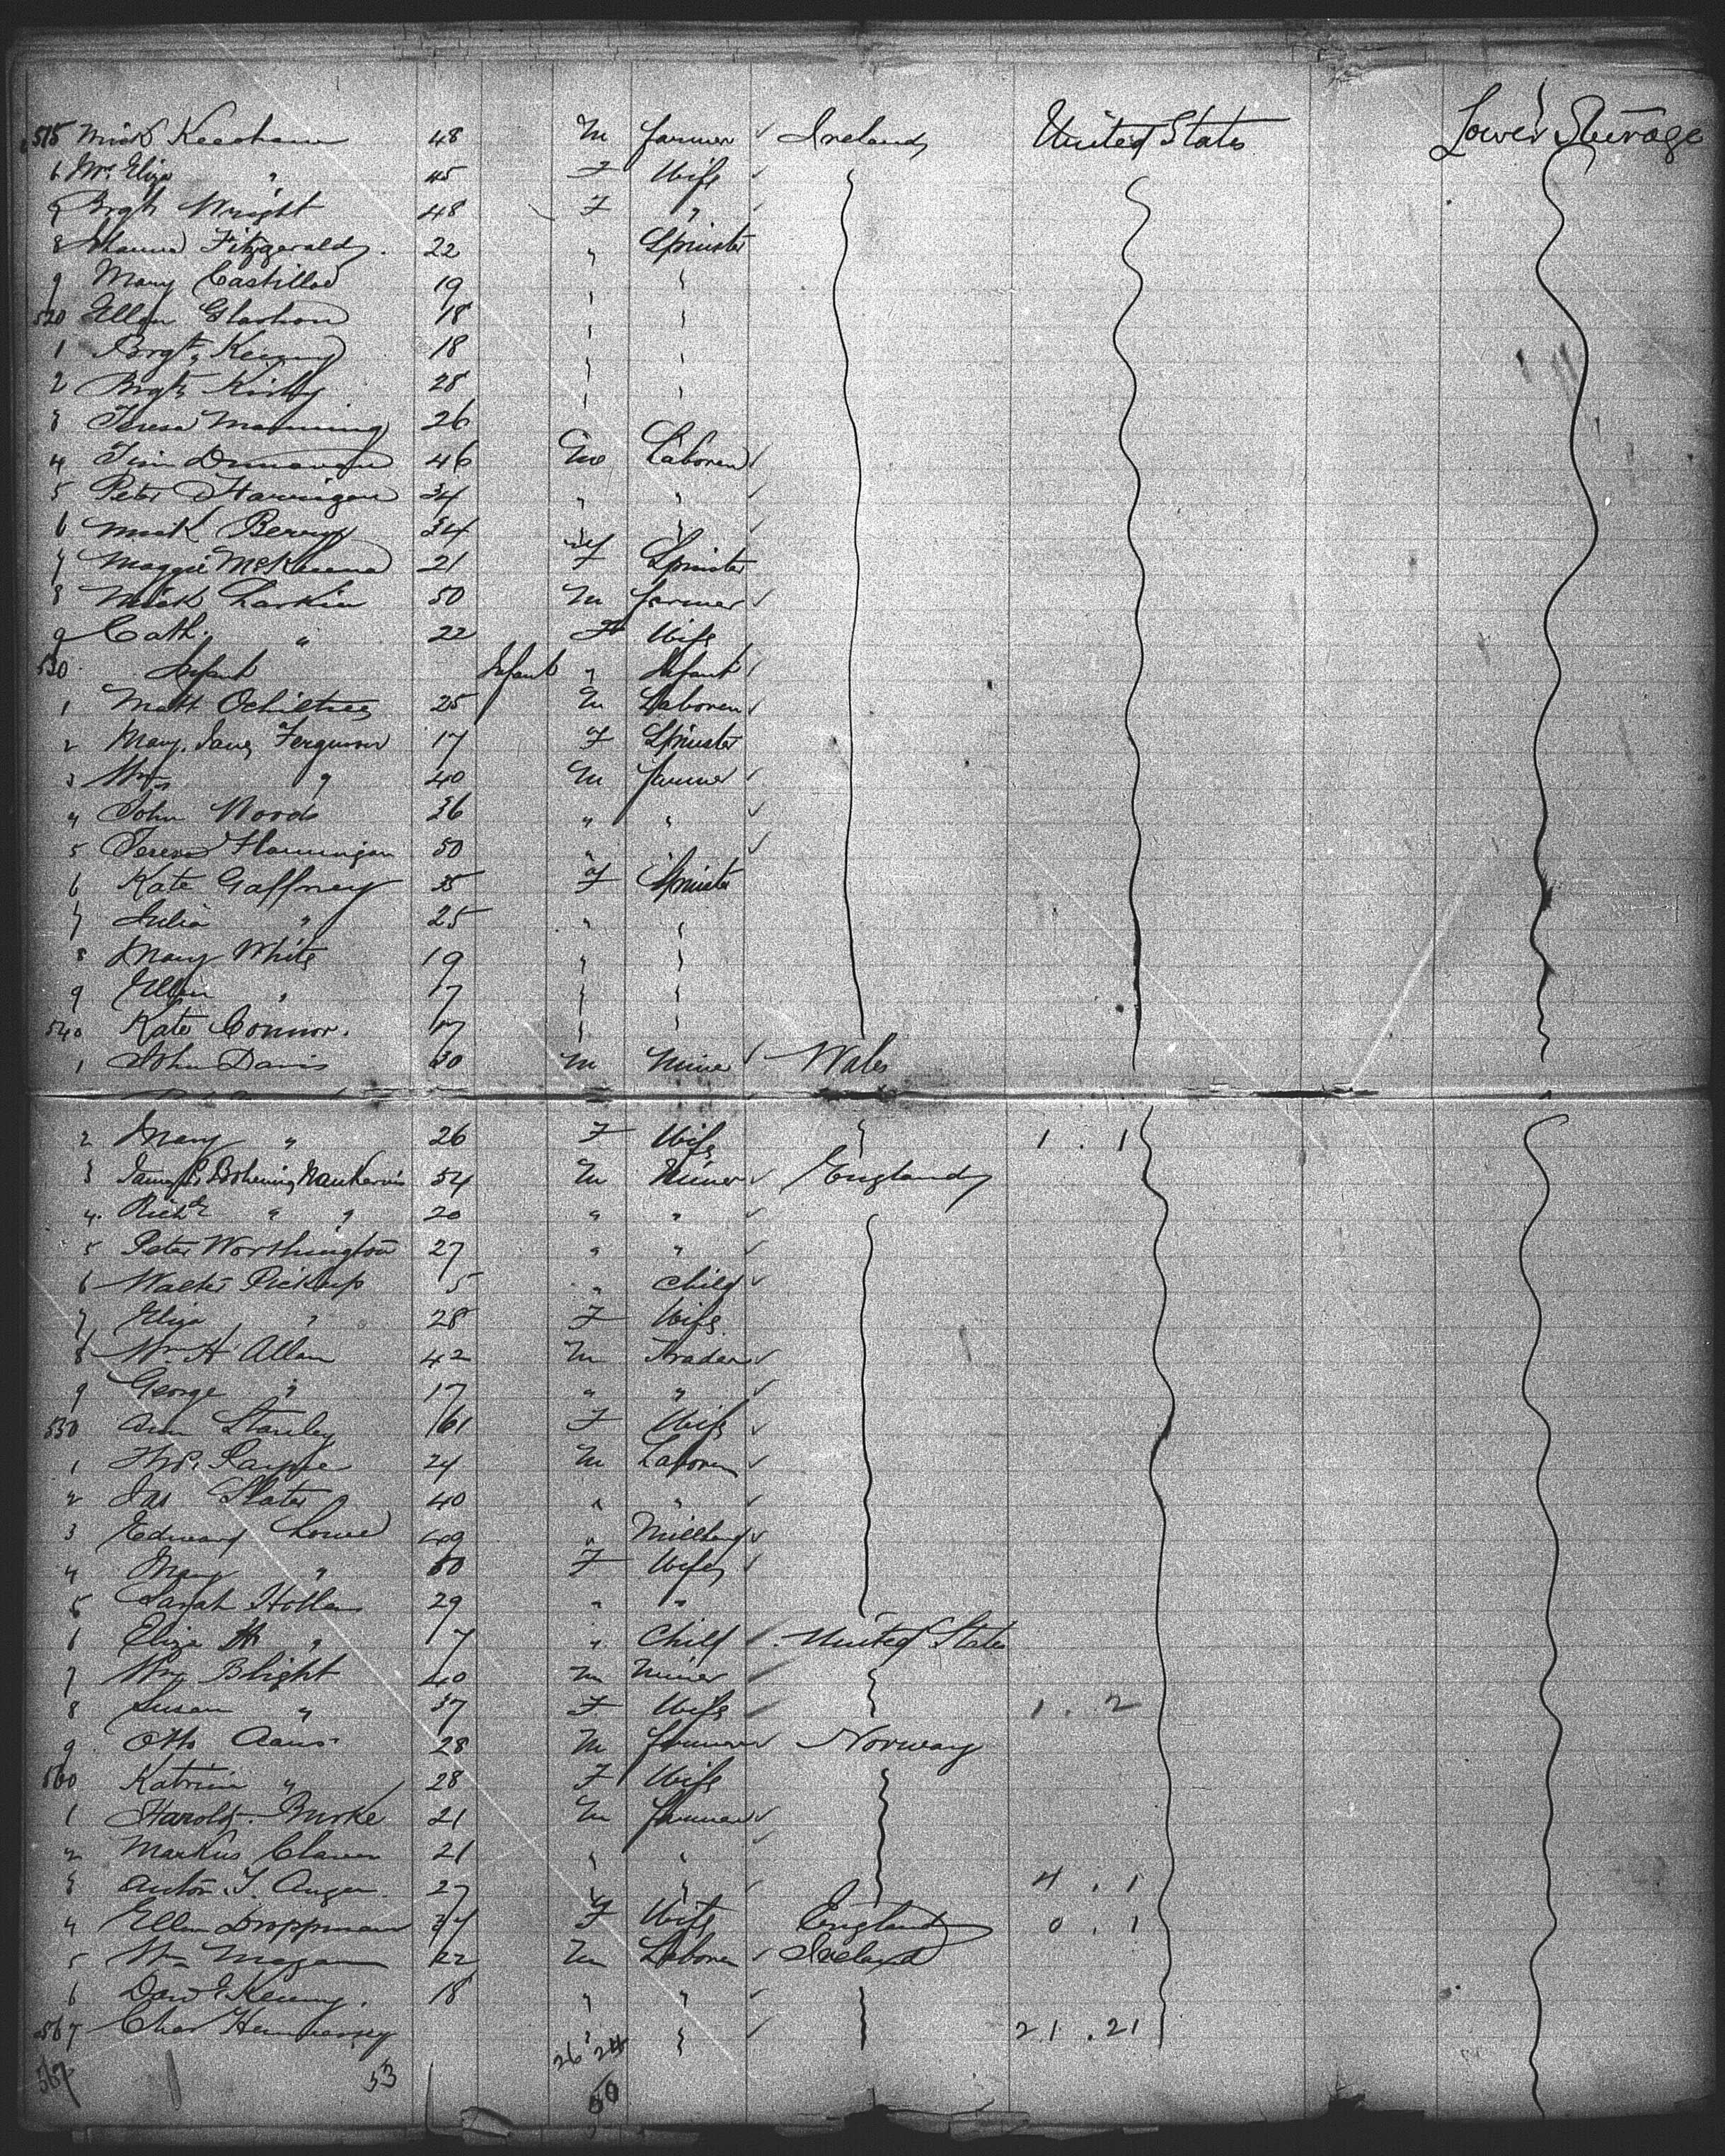 515 Mick Keeshan 48 M farmer ✓ Ireland United States Lower Steerage
6 Mrs Eliza " 45 F Wife ✓
7 Brgt Wright 48 F " ✓
8 Fitzgerald 22 " Spinster
9 Mary 19 " "
520 Ellen 18 " "
1 Brgt Kenny 18 " "
2 Brgt Kirby 28 " "
3 Teresa Manning 26
4 Tim Dunavan 46 M Laborer ✓
5 Peter Harrigan 34 " " ✓
6 Mick Berry 34 " " ✓
7 Maggie McKenna 21 F Spinster
8 Mick Larkin 50 M farmer ✓
9 Cath. " 22 F Wife
530 Infant Infant " Infant ✓
1 Matt Ochiltree 25 M Laborer ✓
2 Mary Jane Ferguson 17 F Spinster
3 Wm " 40 M farmer ✓
4 John Woods 36 " " ✓
5 50 " " ✓
6 Kate Gaffney 25 F Spinster
7 Julia " 25 " "
8 Mary White 19 " "
9 Ellen " 17 " "
540 Kate Connor. 17 " "
1 John Davis 30 M Miner ✓ Wales
2 Mary " 26 F Wife 1 . 1
3 James 54 M Miner ✓ England
4 Richd " " 20 " " ✓
5 Peter Worthington 27 " " ✓
6 Walter Pickup 5 " Child ✓
7 Eliza " 28 F Wife
8 Wm H Allan 42 M Trader ✓
9 George " 17 " " ✓
550 Ann Stanley 61 F Wife ✓
1 24 M Laborer ✓
2 Jas Slater 40 " " ✓
3 Edward Lowe 49 " Millhand ✓
4 Mary " 50 F Wife ✓
5 Sarah 29 " "
6 Eliza " 7 " Child ✓ United States
7 Wm Blight 40 M Miner ✓
8 Susan " 37 F Wife ✓ 1 . 2
9 Otto Aans 28 M farmer ✓ Norway
560 Katrine " 28 F Wife
1 Harold Burke 21 M farmer ✓
2 Markus 21 " " ✓
3 Anton 27 " " ✓ 4 . 1
4 Ellen F Wife England 0 . 1
5 Wm 22 M Laborer ✓ Ireland
6 Davd Kenny. 18 " " ✓
567 Chas Hennessey " " ✓ 21 . 21
567 53 26 24
50